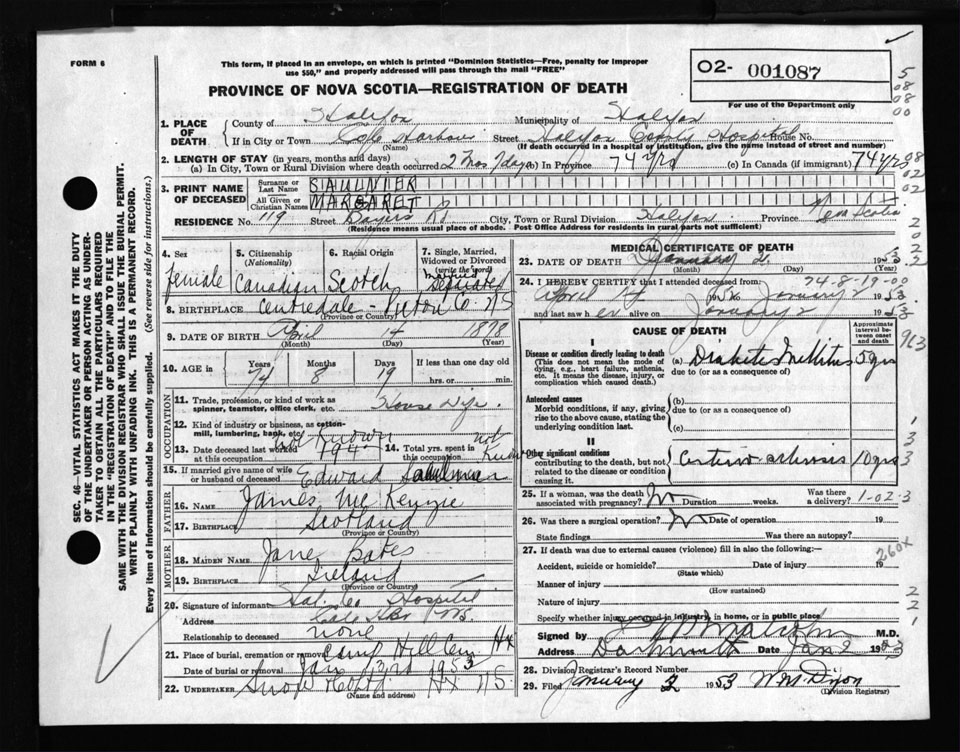 FORM 6
This form, if placed in an envelope, on which is printed "Dominion Statistics—Free, penalty for improper
use $50," and properly addressed will pass through the mail "FREE"
O2- 001087
For use of the Department only
PROVINCE OF NOVA SCOTIA—REGISTRATION OF DEATH
1. PLACE OF DEATH
County of Halifax Municipality of Halifax
If in City or Town Cole Harbour Street Halifax County Hospital House No.
(Name) (If death occurred in a hospital or institution, give the name instead of street and number)
2. LENGTH OF STAY (in years, months and days)
(a) In City, Town or Rural Division where death occurred 2 mos 7 days (b) In Province 74 yrs (c) In Canada (if immigrant) 74 yrs
3. PRINT NAME OF DECEASED
Surname or Last Name SAULNIER
All Given or Christian Names MARGARET
RESIDENCE No. 119 Street Bayers Rd City, Town or Rural Division Halifax Province Nova Scotia
(Residence means usual place of abode. Post Office Address for residents in rural parts not sufficient)
4. Sex female
5. Citizenship (Nationality) Canadian
6. Racial Origin Scotch
7. Single, Married, Widowed or Divorced (write the word) Married Separated
8. BIRTHPLACE Centredale - Pictou Co. NS
(Province or Country)
9. DATE OF BIRTH April 14 1878
(Month) (Day) (Year)
10. AGE in Years Months Days If less than one day old
74 8 19 hrs. or min.
OCCUPATION
11. Trade, profession, or kind of work as spinner, teamster, office clerk, etc. House Wife
12. Kind of industry or business, as cotton-mill, lumbering, bank, etc.
13. Date deceased last worked at this occupation not known 194
14. Total yrs. spent in this occupation not
15. If married give name of wife or husband of deceased Edward Saulnier
FATHER
16. NAME James McKenzie
17. BIRTHPLACE Scotland
(Province or Country)
MOTHER
18. MAIDEN NAME Jane Bates
19. BIRTHPLACE Ireland
(Province or Country)
20. Signature of informant Hal. Co Hospital
Address Cole Hbr NS.
Relationship to deceased none
21. Place of burial, cremation or removal Camp Hill Cem Hx
Date of burial or removal Jan 3rd 1953
22. UNDERTAKER Snow Hx NS
(Name and address)
MEDICAL CERTIFICATE OF DEATH
23. DATE OF DEATH January 2. 1953
(Month) (Day) (Year)
74-8-19-00
24. I HEREBY CERTIFY that I attended deceased from
April 14 to January 2 1953
and last saw h er alive on January 2 1953
CAUSE OF DEATH
Approximate interval between onset and death
I
Disease or condition directly leading to death
(This does not mean the mode of dying, e.g., heart failure, asthenia, etc. It means the disease, injury, or complication which caused death.)
(a) Diabetes Mellitus 5 yrs
due to (or as a consequence of)
Antecedent causes
Morbid conditions, if any, giving rise to the above cause, stating the underlying condition last.
(b)
due to (or as a consequence of)
(c)
II
Other significant conditions
contributing to the death, but not related to the disease or condition causing it.
Arteriosclerosis 10 yrs
25. If a woman, was the death associated with pregnancy? No Duration weeks. Was there a delivery?
1-02-3
26. Was there a surgical operation? No Date of operation 19
State findings Was there an autopsy?
27. If death was due to external causes (violence) fill in also the following:
260X
Accident, suicide or homicide? Date of injury 19
(State which)
Manner of injury
(How sustained)
Nature of injury
Specify whether injury occurred in industry, in home, or in public place
Signed by M.D.
Address Dartmouth Date Jan 2 1953
28. Division Registrar's Record Number
29. Filed January 2 1953 W.M. Dixon
(Division Registrar)
SEC. 46—VITAL STATISTICS ACT MAKES IT THE DUTY
OF THE UNDERTAKER OR PERSON ACTING AS UNDER-
TAKER TO OBTAIN ALL THE PARTICULARS REQUIRED
IN THE "REGISTRATION OF DEATH" AND TO FILE THE
SAME WITH THE DIVISION REGISTRAR WHO SHALL ISSUE THE BURIAL PERMIT.
WRITE PLAINLY WITH UNFADING INK. THIS IS A PERMANENT RECORD.
Every item of Information should be carefully supplied. (See reverse side for instructions.)